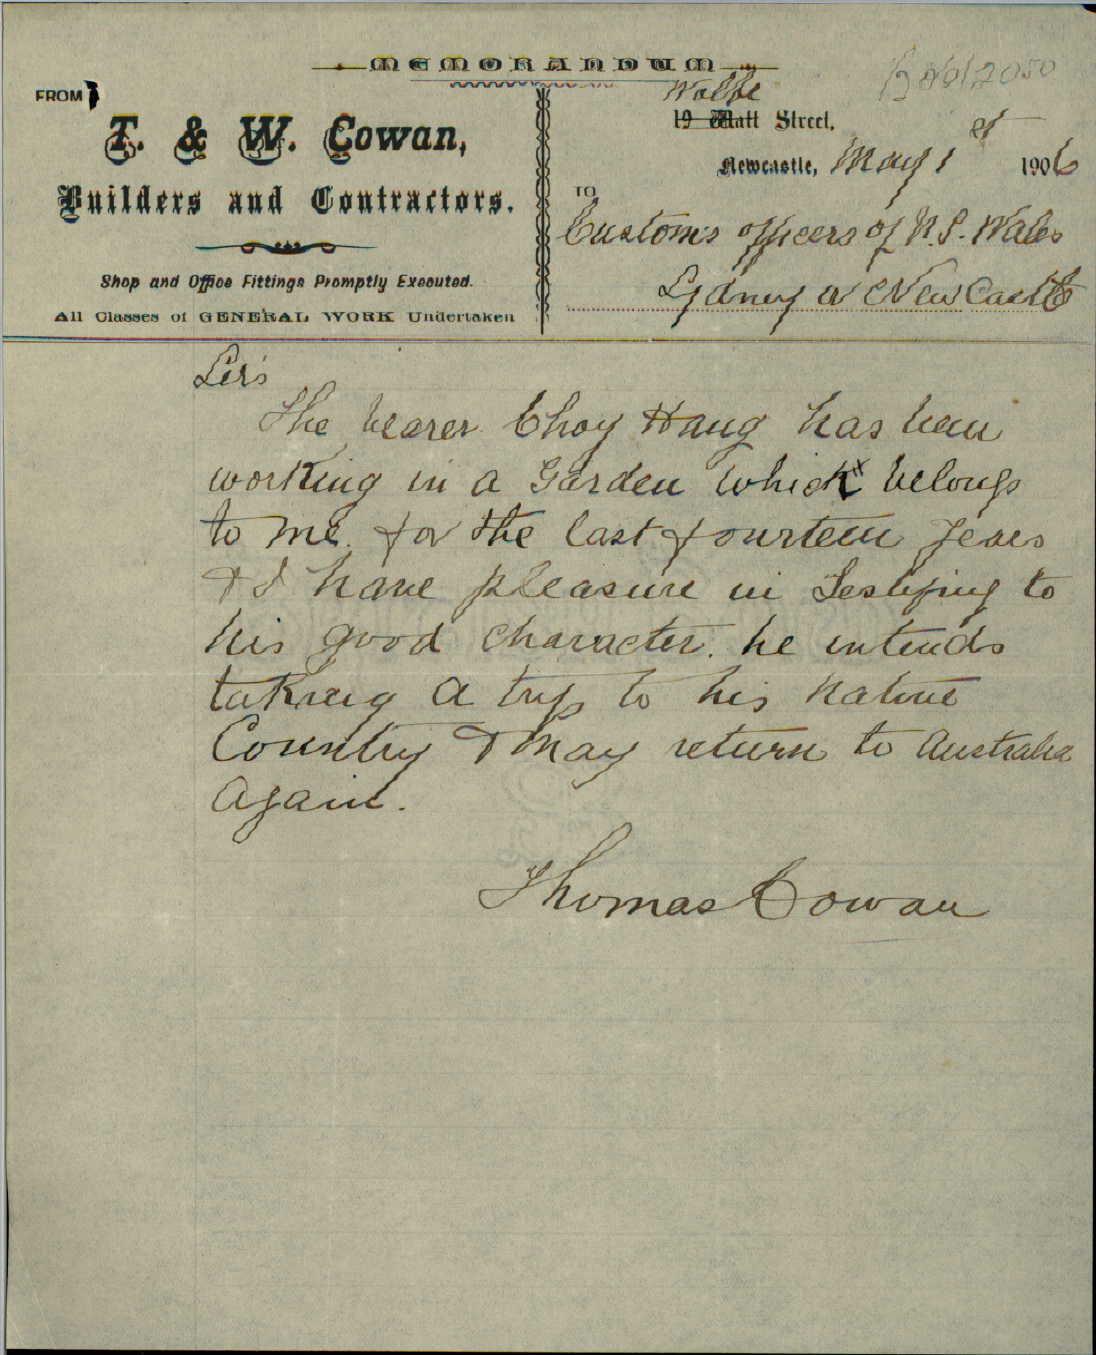 MEMORANDUM
FROM
T. & W. Cowan,
Builders and Contractors.
Shop and Office Fittings Promptly Executed.
All Classes of GENERAL WORK Undertaken
Wolfe
19 Watt Street,
Newcastle, May 1st 1906
TO
Customs officers of N.S. Wales
Sydney or NewCastle
Sirs
The bearer Choy Hang has been
working in a Garden which belongs
to me. for the last fourteen years
& I have pleasure in Testifying to
his good character. he intends
taking a trip to his native
Country & May return to Australia
Again.
Thomas Cowan